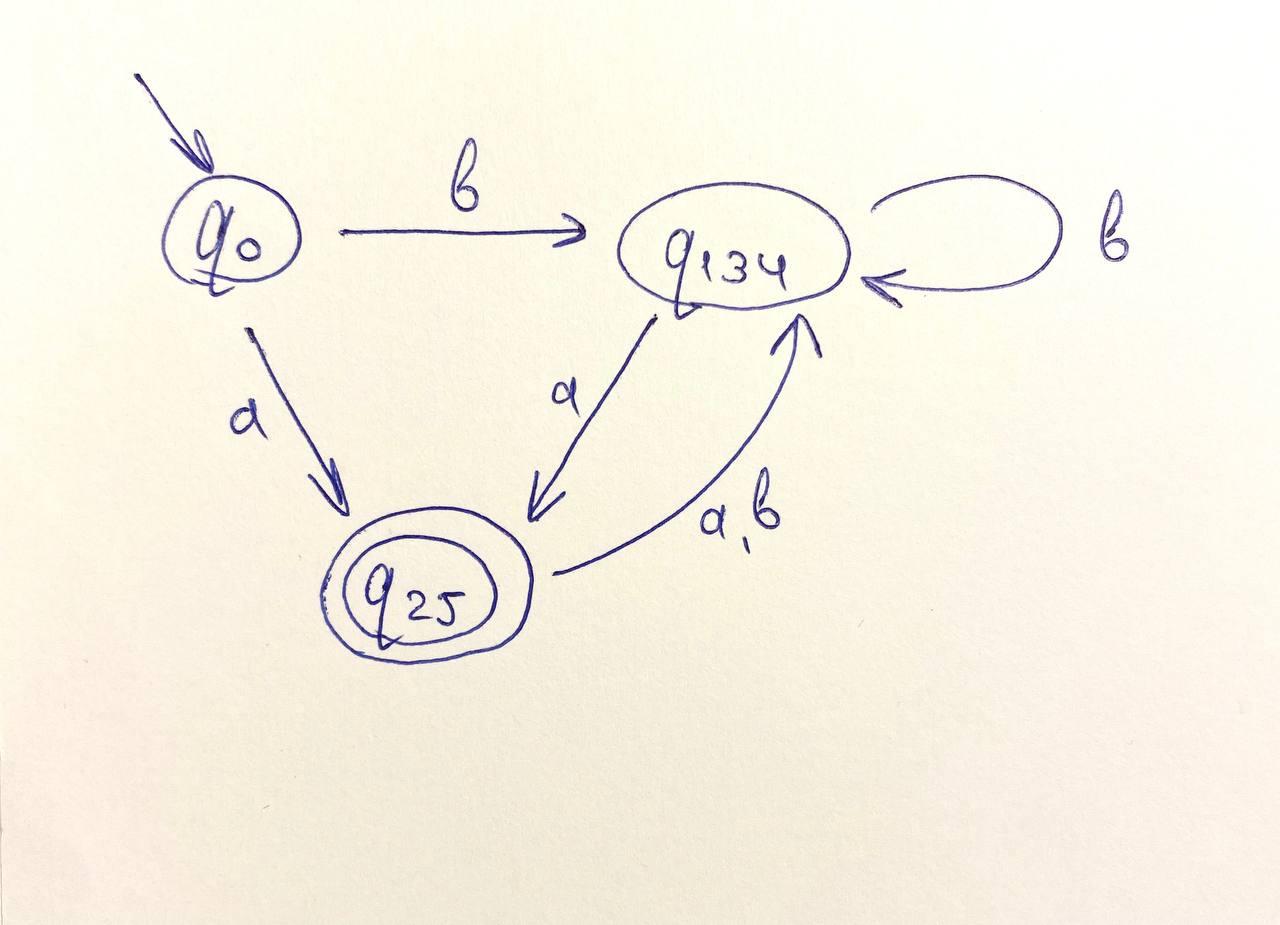 b
q0
q134
b
a
a
a, b
q25